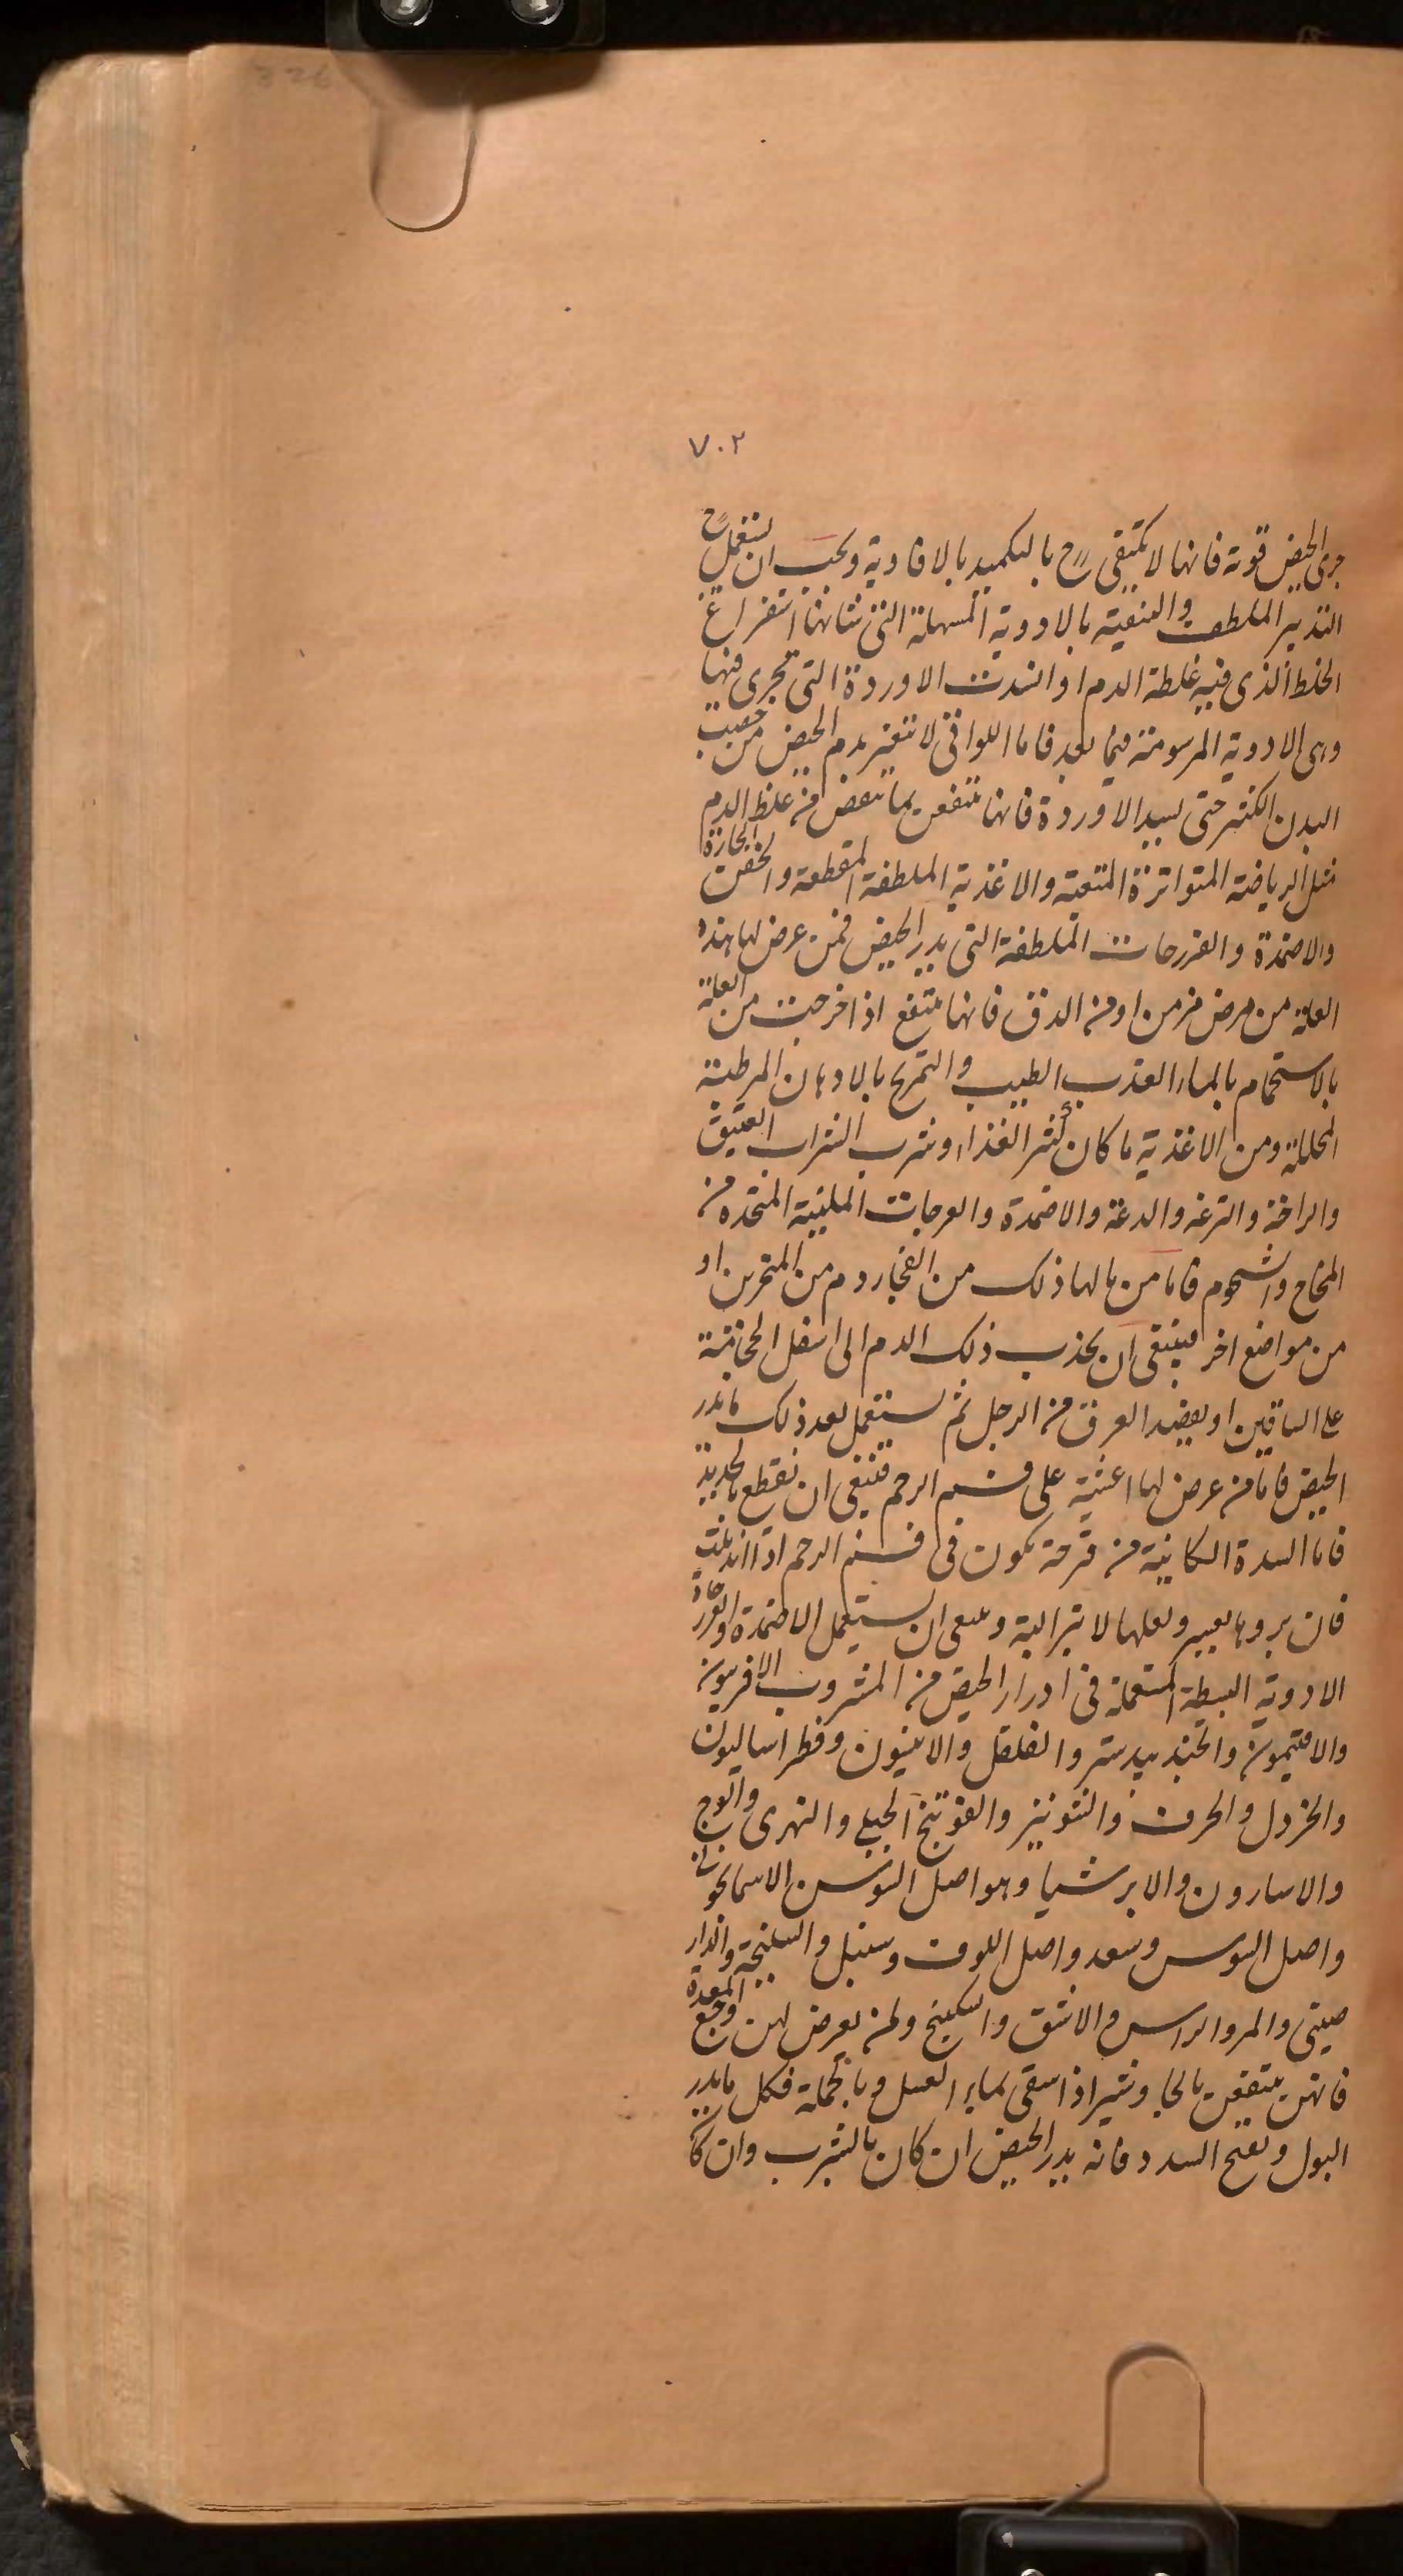 326
٧٠٢
جرى الحيض قوته فانها لا تكتفى ح بالتكميد بالافاوية ويجب ان تستعمل ح
التدبير الملطف والتنقية بالادوية المسهلة التى شانها استفراغ
الخلط الذى فيه غلظة الدم او انسدت الاوردة التى تجرى فيها
وهى الادوية المرسومة فيما بعد فاما اللواتى لا تتغير بدم الحيض من خصب
البدن الكثير حتى يسد الاوردة فانها تنتفعن بما تنقض من غلظ الدم
مثل الرياضة المتواترة المتعبة والاغذية الملطفة المقطعة والحقن الحارة
والاضمدة والفرزجات الملطفة التى يدر الحيض فمن عرض لها هذه
العلة من مرض مزمن او من الدق فانها تنتفع اذا خرجت من العلة
بالاستحمام بالماء العذب الطيب والتمريخ بالادهان المرطبة
المحللة ومن الاغذية ما كان كثير الغذاء وشرب الشراب العتيق
والراحة والترفه والدعة والاضمدة والفرجات الملينة المتخذه من
المخاخ والشحوم فاما من بالها ذلك من انفجار دم من المنخرين او
من مواضع اخر فينبغى ان يجذب ذلك الدم الى اسفل المحاجمة
على الساقين او بفصد العرق من الرجل ثم يستعمل بعد ذلك ما يدر
الحيض فاما من عرض لها اغشية على فم الرحم فينبغى ان تقطع بالحديد
فاما السدة الكائنة من قرحة تكون فى فم الرحم اذا اندملت
فان بروها يعسر ولعلها لا تبرا البتة وينبغى ان يستعمل الاضمدة والفرزجات
الادوية البسيطة المستعملة فى ادرار الحيض من المشروب الافربيون
والافتيمون والجندبيدستر والفلفل والانيسون وفطراساليون
والخردل والحرف والشونيز والفوتنج الجبلى والنهرى والوج
والاسارون والايرسا وهو اصل السوسن الاسمانجونى
واصل السوس وسعد واصل اللوف وسنبل والسليخة والدار
صينى والمر والراسن والاشق والسكبينج ولمن يعرض لهن وجع المعدة
فانهن ينتفعن بالجاوشير اذا سقى بماء العسل وبالجملة فكل ما يدر
البول ويفتح السدد فانه يدر الحيض ان كان بالشرب وان كا